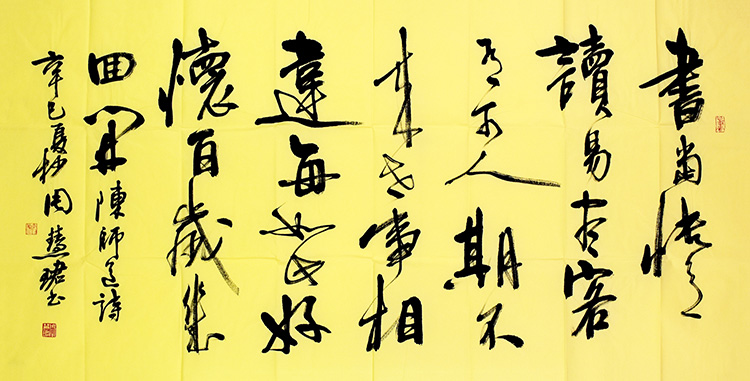 書當快意
讀易盡客
有可人期不
來世事相
違每如此好
懷百歲幾
囬開陳師道詩
辛巳夏杪周慧珺書